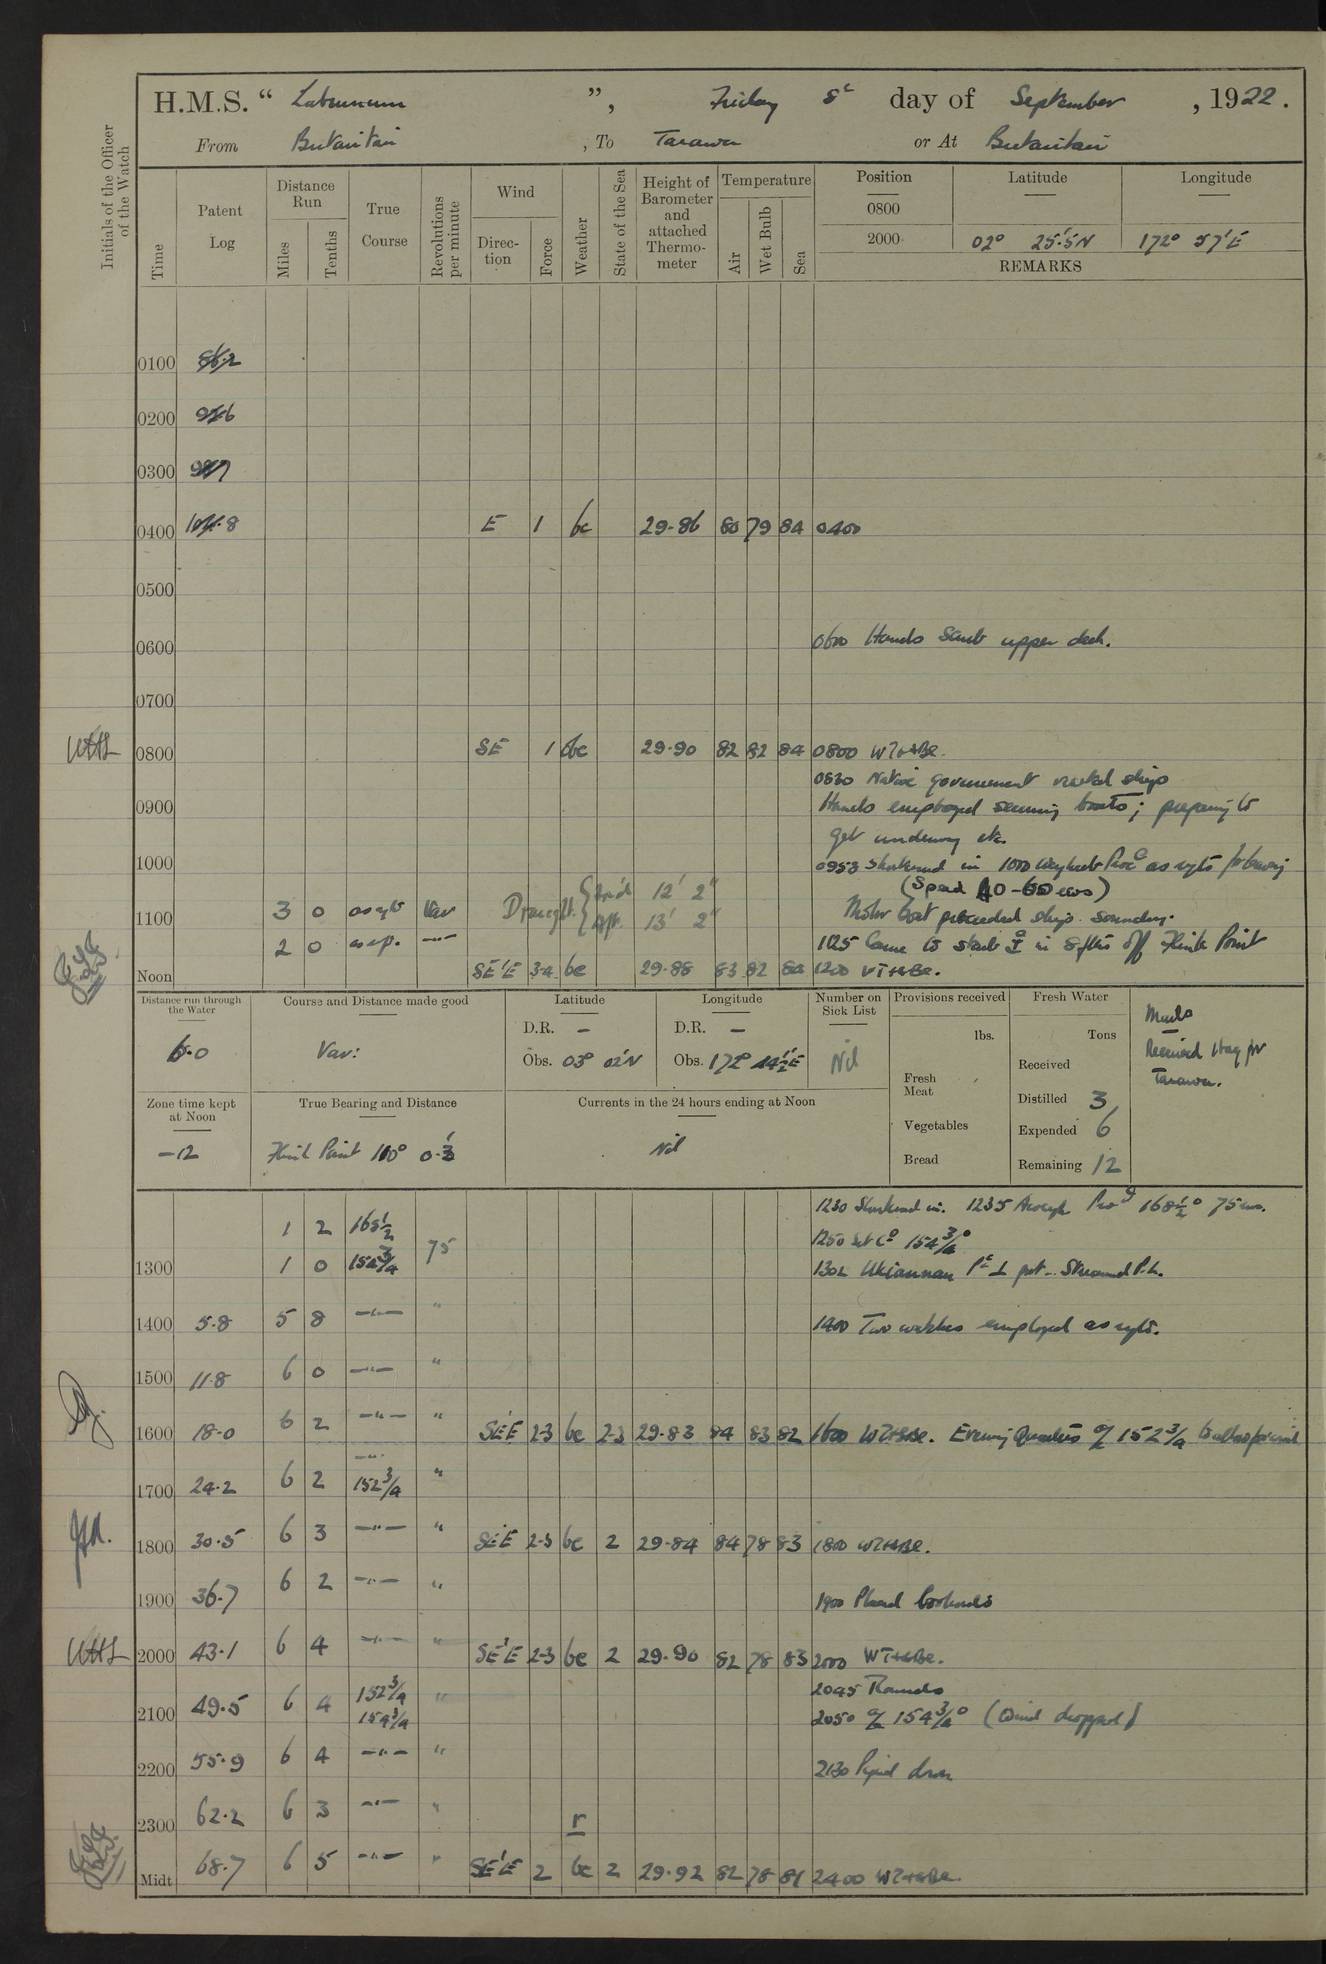 H.M.S. " Laburnum ", Friday 8th day of September, 1922.
From Butaritari, To Tarawa or At Butaritari
Initials of the Officer of the Watch
Time
Patent Log
Distance Run
Miles
Tenths
True Course
Revolutions per minute
Wind
Direction
Force
Weather
State of the Sea
Height of Barometer and attached Thermometer
Temperature
Air
Wet Bulb
Sea
Position
Latitude
Longitude
0800
2000 02° 25.5'N 172° 57'E
REMARKS
0100
0200
0300
0400 E 1 bc 29.86 80 79 84 0400
0500
0600 0600 Hands scrub upper deck.
0700
0800 SE 1 bc 29.90 82 82 84 0800
0830 Native government visited ship
0900 Hands employed securing boats; preparing to
get underway etc.
1000 0953 Shortened in 1000 Weighed Proc as reqte for leaving
(Speed 40-60 revs)
Draught. For'd 12' 2"
Aft. 13' 2"
1100 3 0 as reqte Var Motor boat preceeded ship sounding.
2 0 as req. 1125 Came to starb in 8 fms off Flink Point
Noon SE'E 3-4 bc 29.88 83 82 82 1200
Distance run through the Water
6.0
Course and Distance made good
Var:
Latitude
D.R. –
Obs. 03° 02'N
Longitude
D.R. –
Obs. 172° 44½'E
Number on Sick List
Nil
Provisions received
lbs.
Fresh Meat
Vegetables
Bread
Fresh Water
Tons
Received
Distilled 3
Expended 6
Remaining 12
Mails
Received 1 bag for
Tarawa.
Zone time kept at Noon
-12
True Bearing and Distance
Flink Point 110° 0.3'
Currents in the 24 hours ending at Noon
Nil
1 2 168½ 75 1230 Shortened in. 1235 Aweigh Proc 168½° 75 revs.
1250 set Co 154¾°
1300 1 0 154¾ 1302 Ukiannan Pt ⊥ port. Streamed P.L.
1400 5.8 5 8 —"— " 1400 Two watches employed as reqte.
1500 11.8 6 0 —"— "
1600 18.0 6 2 —"— " SE'E 2-3 bc 2-3 29.83 84 83 82 1600 Evening Quarters a/c 152¾ to allow for wind
1700 24.2 6 2 152¾ "
1800 30.5 6 3 —"— " SE'E 2-3 bc 2 29.84 84 78 83 1800
1900 36.7 6 2 —"— " 1900 Placed lookouts
2000 43.1 6 4 —"— " SE'E 2-3 bc 2 29.90 82 78 83 2000
2045 Rounds
2100 49.5 6 4 152¾ 154¾ " 2050 a/c 154¾° (Wind dropped)
2200 55.9 6 4 —"— " 2130 Piped down
2300 62.2 6 3 —"— " r
Midt 68.7 6 5 —"— " SE'E 2 bc 2 29.92 82 78 81 2400